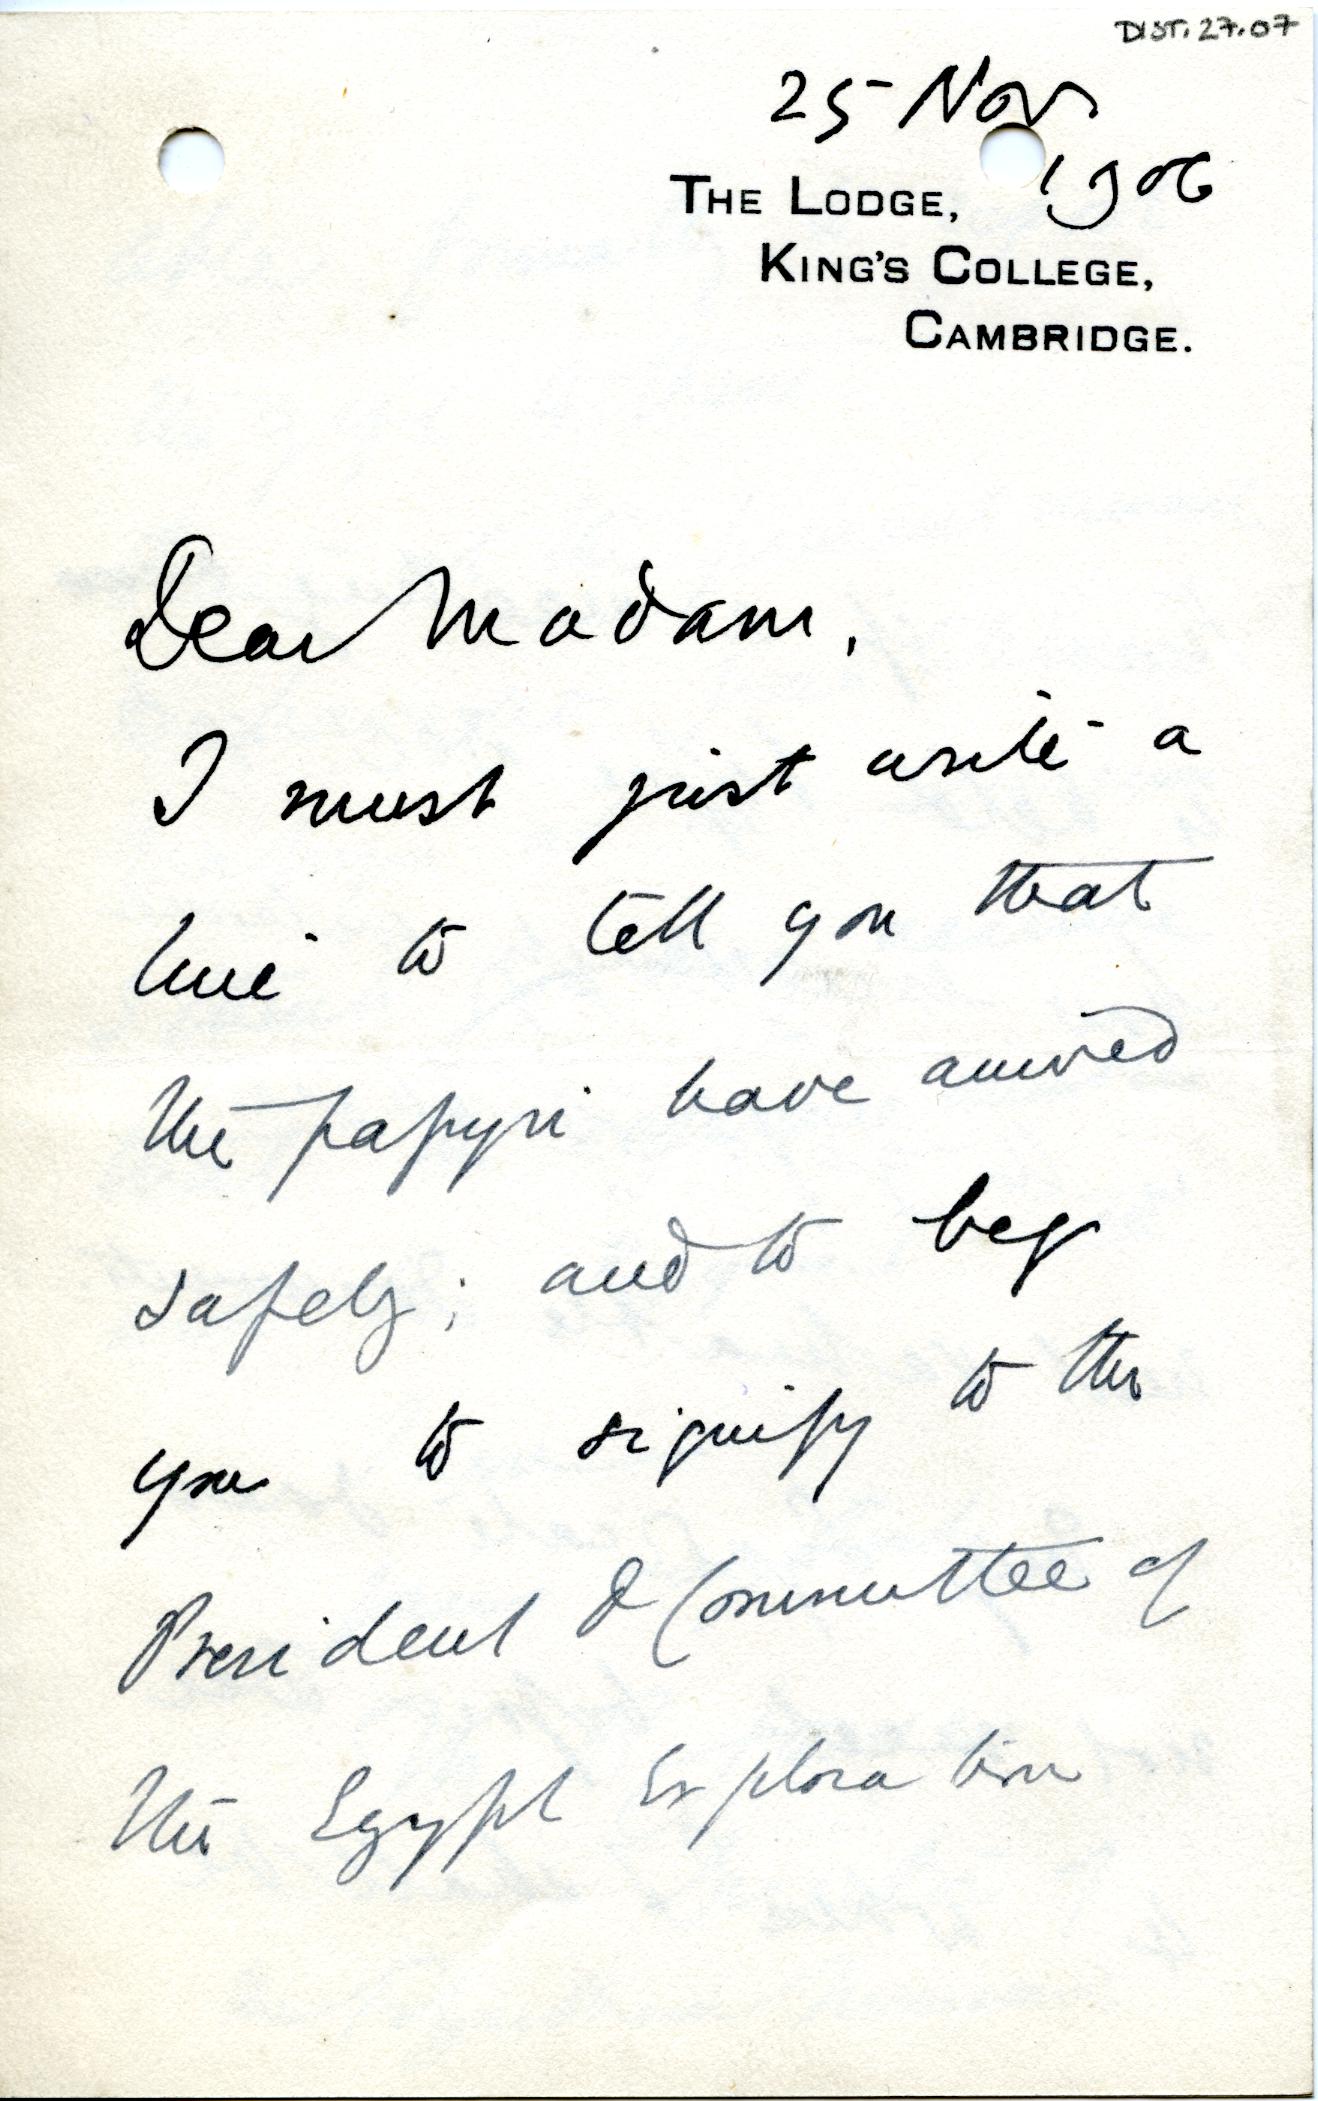 DIST. 27.07
25 Nov
1906
THE LODGE,
KING'S COLLEGE,
CAMBRIDGE.
Dear Madam,
I must just write a
line to tell you that
the papyri have arrived
safely; and to beg
you to signify to the
President & Committee of
the Egypt Exploration